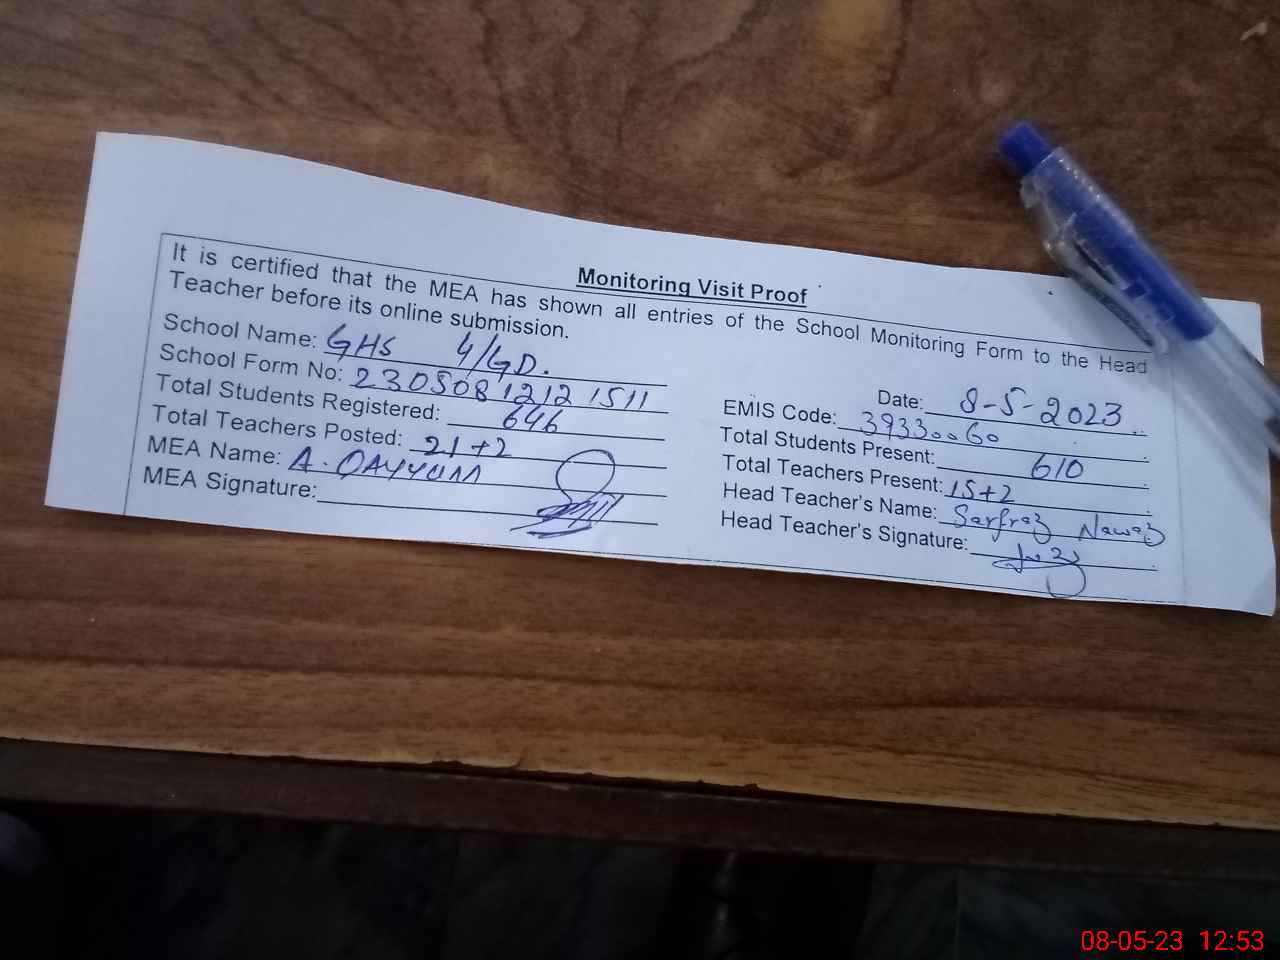 Monitoring Visit Proof
It is certified that the MEA has shown all entries of the School Monitoring Form to the Head
Teacher before its online submission.
Date: 8-5-2023
School Name: GHS 4/GD.
EMIS Code: 39330060
School Form No: 2305081212 1511
Total Students Present: 610
Total Students Registered: 646
Total Teachers Present: 15+2
Total Teachers Posted: 21+2
Head Teacher's Name: Sarfraz Nawaz
MEA Name: A. QAYYUM
Head Teacher's Signature:
MEA Signature:
08-05-23 12:53